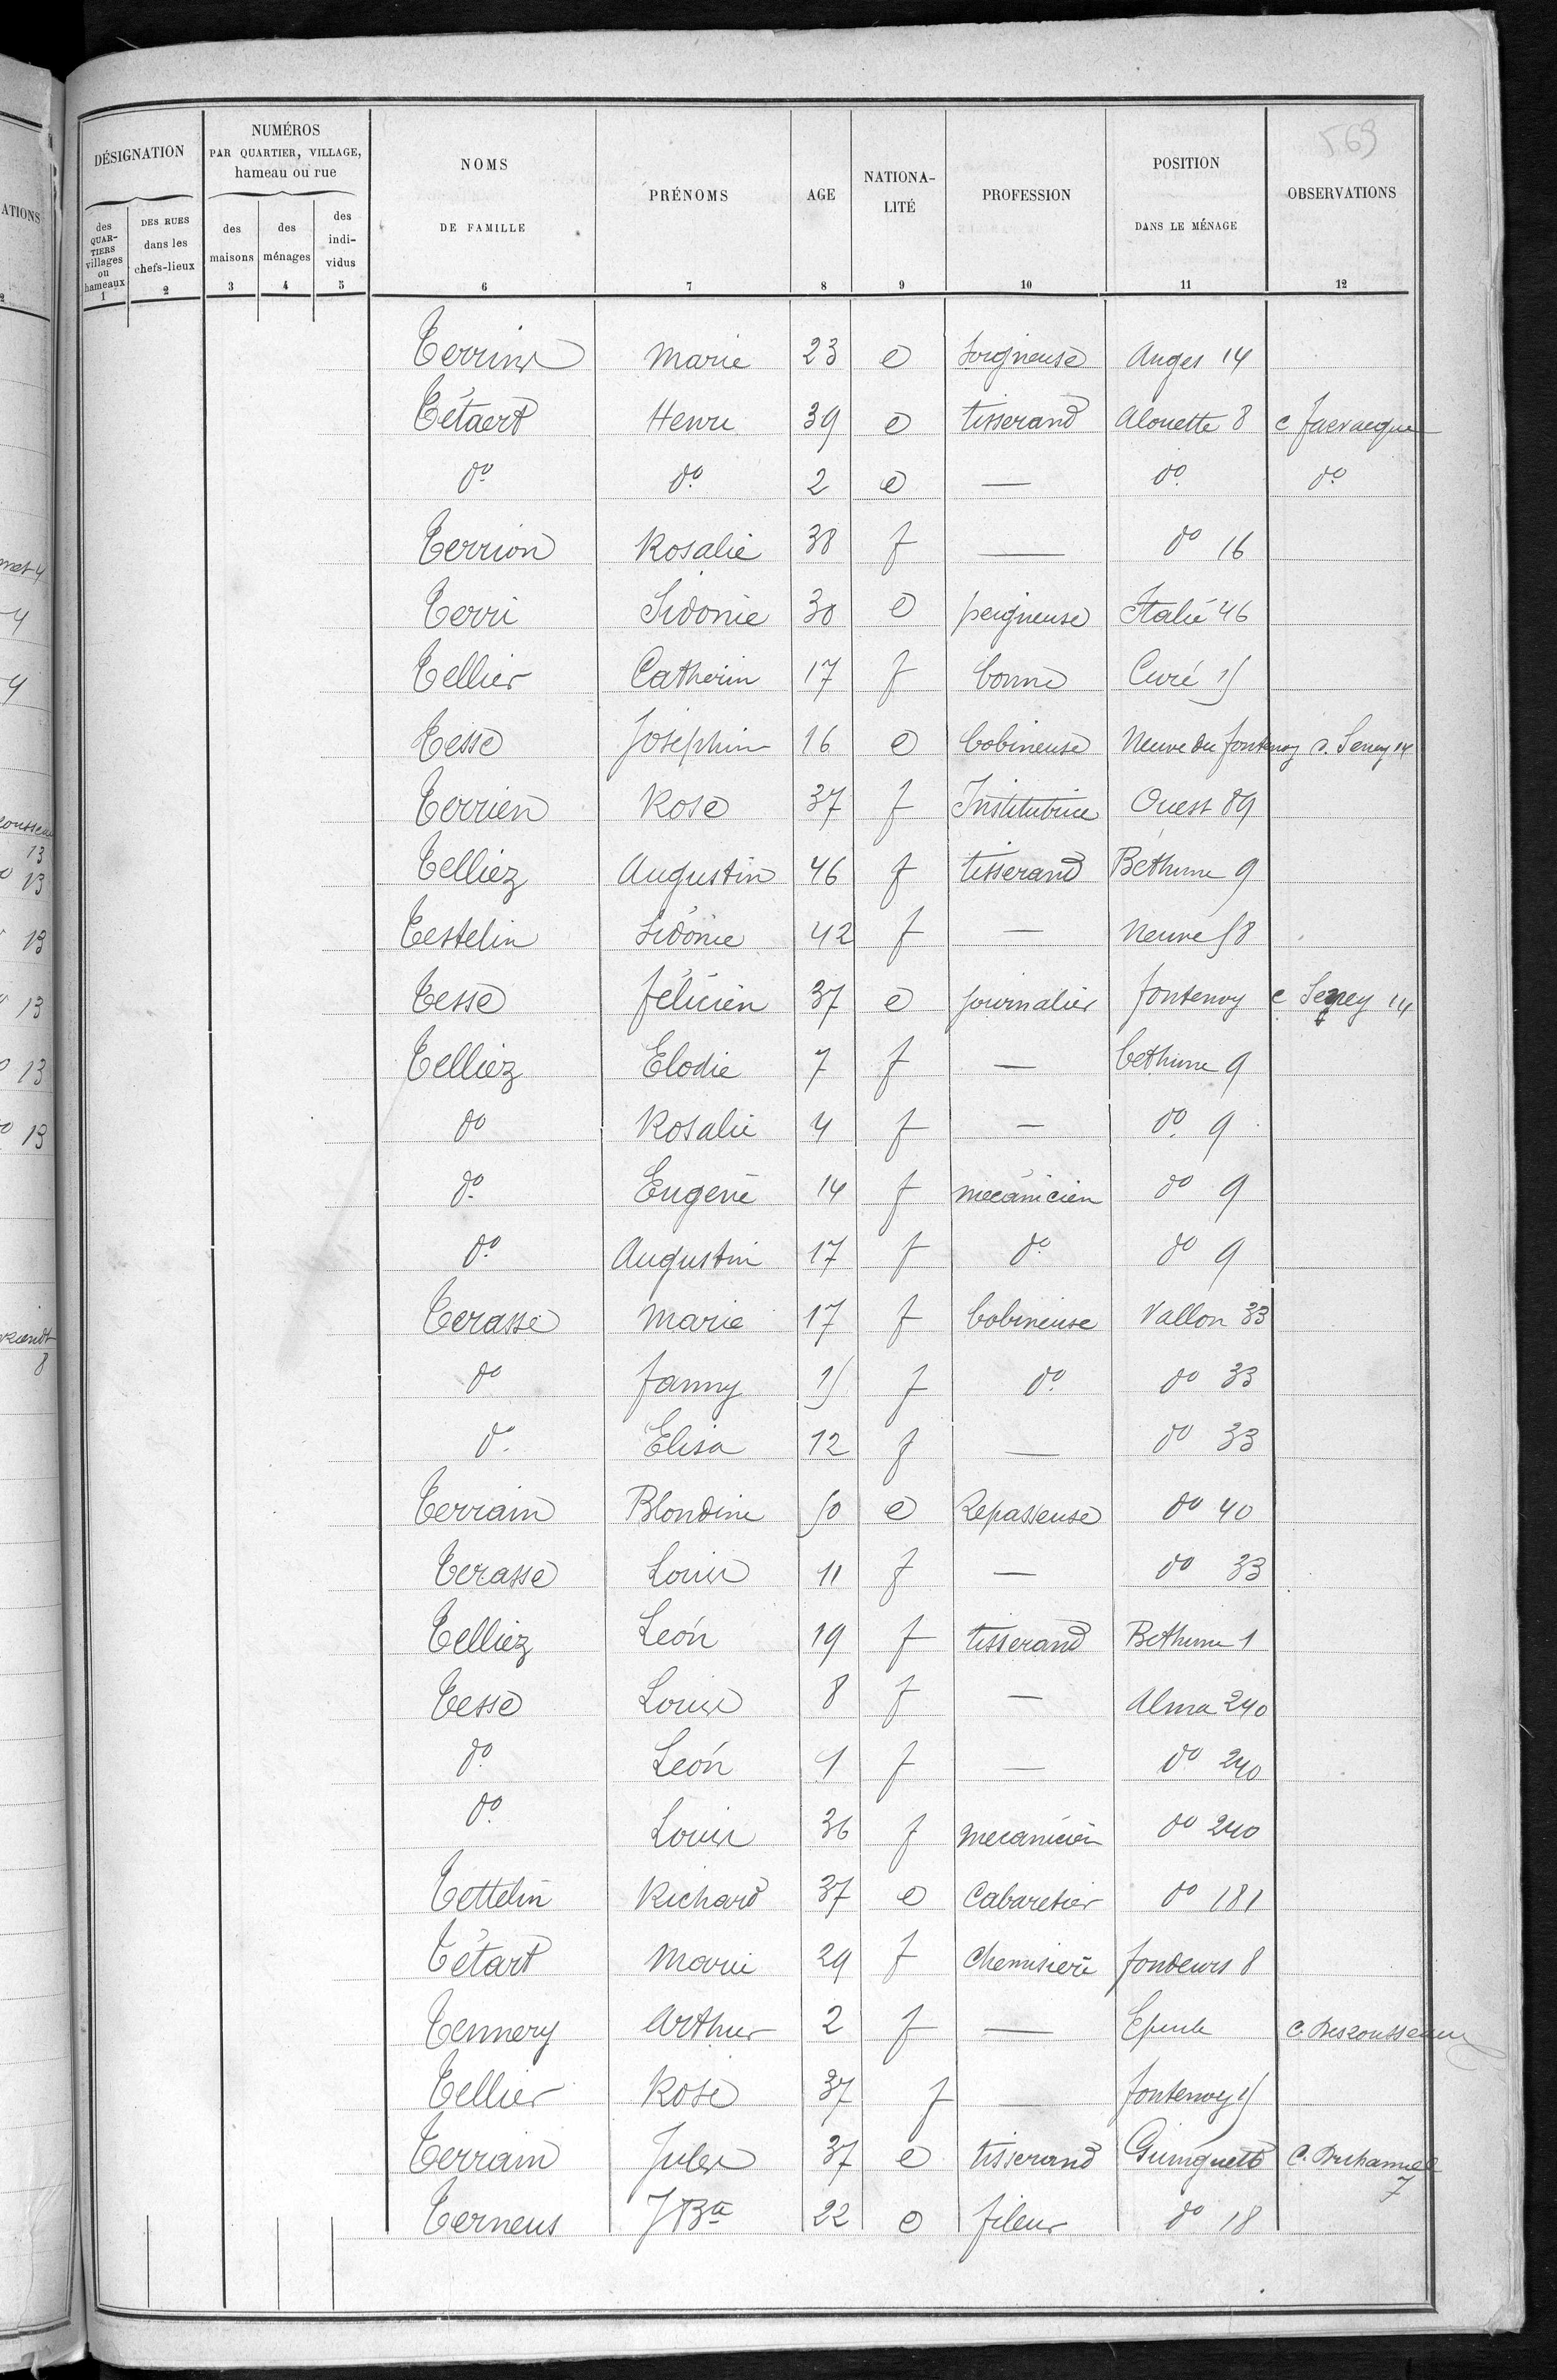 563
DÉSIGNATION
NUMÉROS
PAR QUARTIER, VILLAGE,
hameau ou rue
NOMS
DE FAMILLE
PRÉNOMS
AGE
NATIONA-
LITÉ
PROFESSION
POSITION
DANS LE MÉNAGE
OBSERVATIONS
des QUAR-TIERS villages ou hameaux
DES RUES dans les chefs-lieux
des maisons
des ménages
des indi-vidus
1 2 3 4 5 6 7 8 9 10 11 12
Marie 23 e soigneuse Anges 14
Tétaert Henri 39 e tisserand Alouette 8
do do 2 e — do do
Terrion Rosalie 38 f — do 16
Terri Sidonie 30 e peigneuse Italie 46
Tellier Catherin 17 f bonne Curé 15
Tesse Joséphin 16 e bobineuse Neuve du fontenoy c. Serrey 14
Terrien Rose 37 f Institutrice Ouest 89
Telliez Augustin 46 f tisserand Béthune 9
Testelin Sidonie 42 f — Neuve 58
Tesse félicien 37 e journalier fontenoy c Serrey 14
Telliez Elodie 7 f — bethune 9
do Rosalie 4 f — do 9
do Eugène 14 f mécanicien do 9
do Augustin 17 f do do 9
Terasse Marie 17 f bobineuse Vallon 33
do fanny 15 f do do 33
do Elisa 12 f — do 33
Terrain Blondine 50 e Repasseuse do 40
Terasse Louis 11 f — do 33
Telliez Léon 19 f tisserand Bethune 1
Tesse Louise 8 f — Alma 240
do Léon 4 f — do 240
do Louis 36 f mecanicien do 240
Tettelin Richard 37 e Cabaretier do 181
Tétart Marie 29 f Chemisière fondeurs 8
Tennery Arthur 2 f — Epeule C. Desrousseaux
Tellier Rose 37 f — fontenoy 15
Terrain Jules 37 e tisserand Guinguette C. Duhamel 7
Terneus JBte 22 e fileur do 18